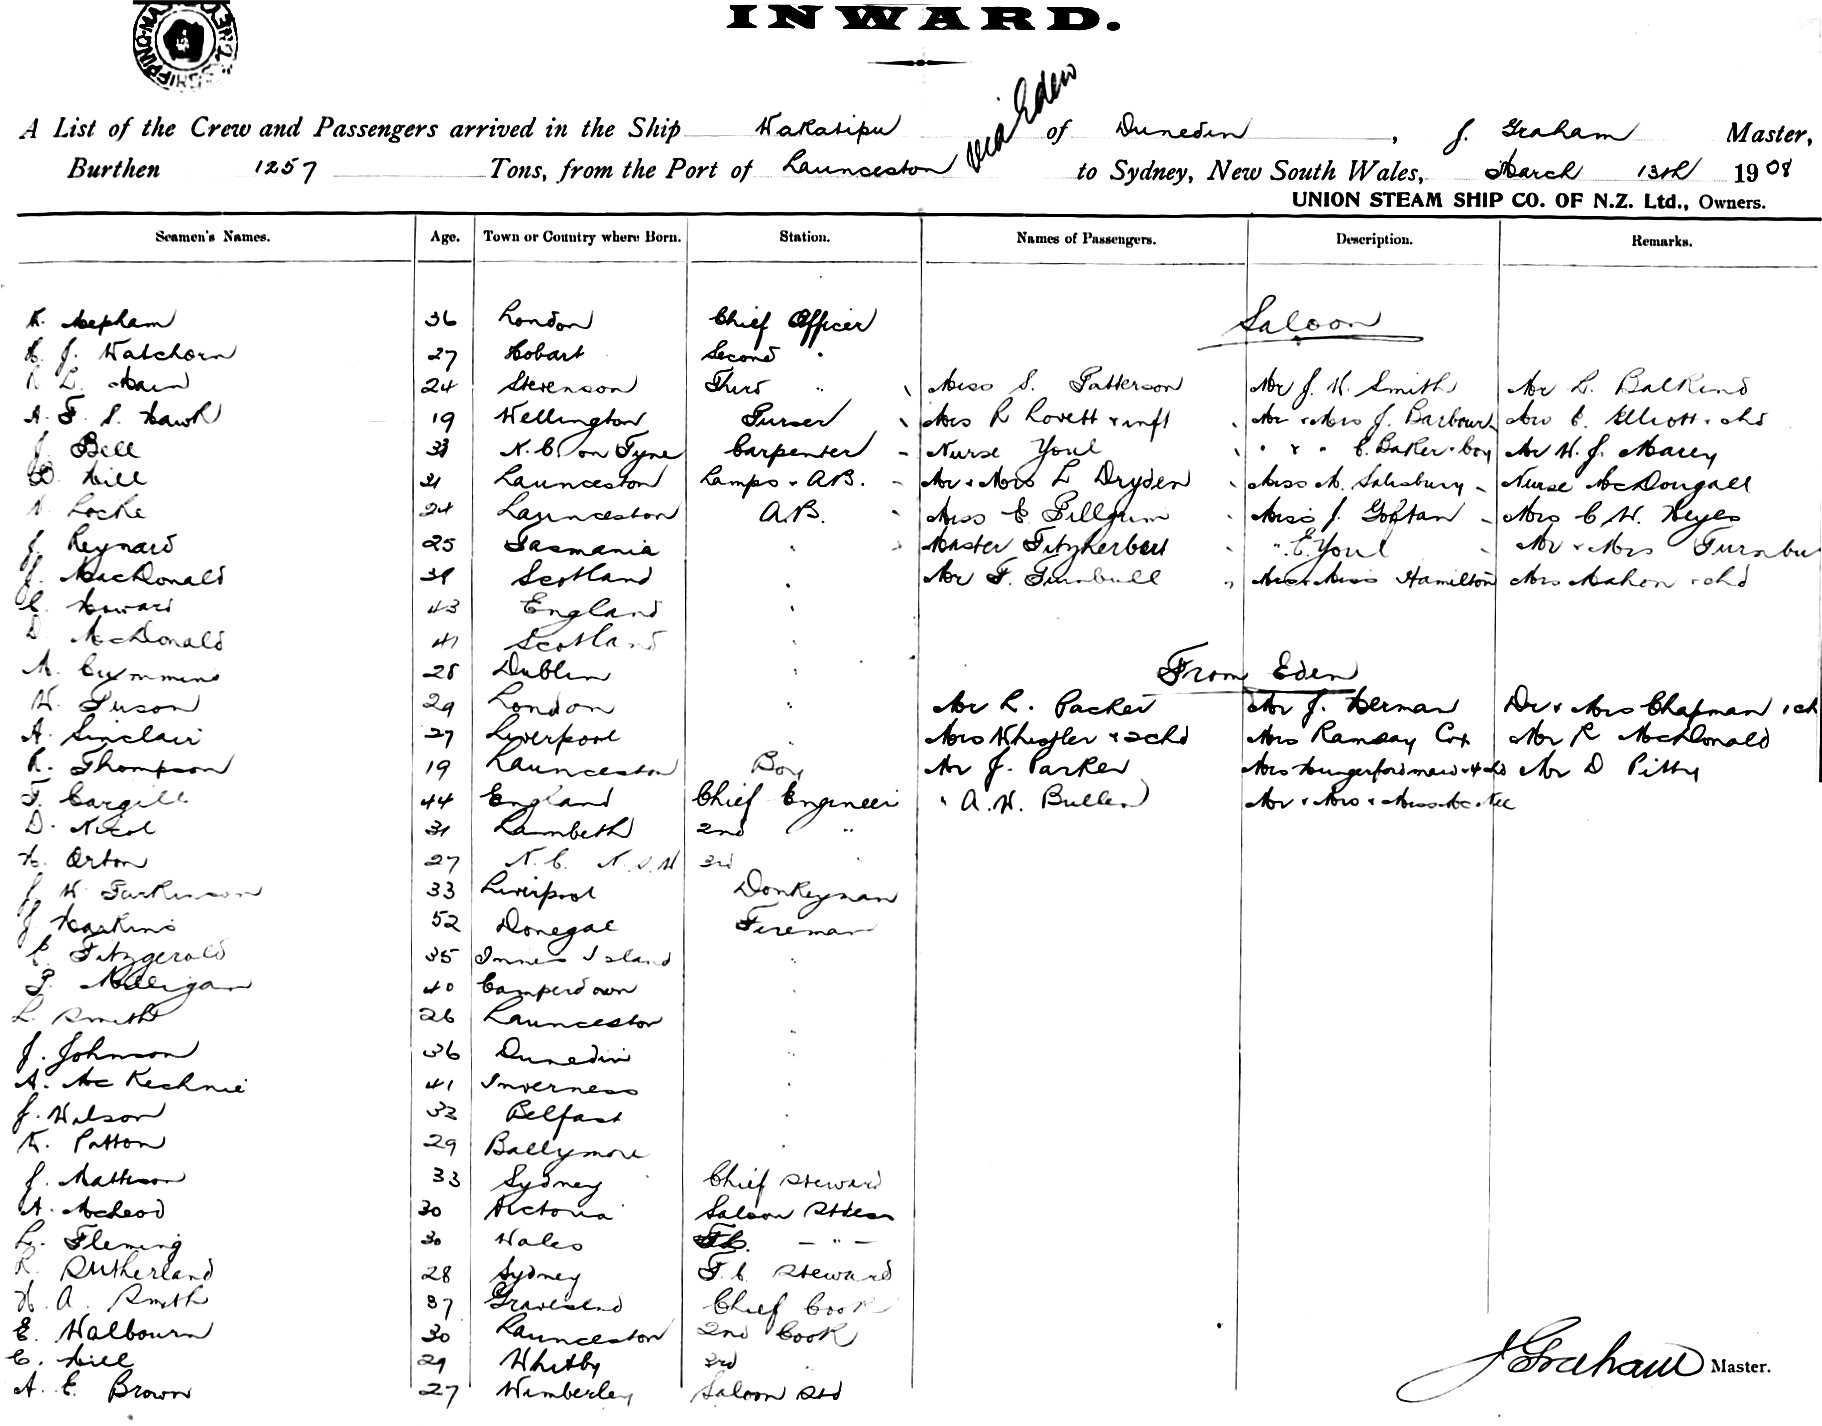 INWARD.
A List of the Crew and Passengers arrived in the Ship Wakatipu via Eden of Dunedin, J. Graham Master,
Burthen 1257 Tons, from the Port of Launceston to Sydney, New South Wales, March 13th 1908
UNION STEAM SHIP CO. OF N.Z. Ltd., Owners.
Seamen's Names. Age. Town or Country where Born. Station. Names of Passengers. Description. Remarks.
Mepham 36 London Chief Officer Saloon
J. Watchorn 27 Hobart Second "
24 Stevenson Third " Miss S. Patterson Mr J. W. Smith Mr L. Balkind
A. F. S. Hawk 19 Wellington Purser Mrs R Lovett & inft Mr & Mrs J. Barbour Mrs C. Elliott & chd
J. Bell 33 N. C. on Tyne Carpenter Nurse Youl " " " C. Baker & boy Mr W. J. Marey
D. Hill 31 Launceston Lamps & A.B. Mr & Mrs L Dryden Miss M. Salisbury Nurse McDougall
Locke 24 Launceston A.B. Miss E. Pillgrim Miss J. Mrs C W. Keyes
J. Reynard 25 Tasmania " Master Fitzherbert " E. Youl Mr & Mrs Turnbu
J. MacDonald 39 Scotland " Mr F. Turnbull Mrs & Miss Hamilton Mrs Mahon & chd
C. Howard 43 England "
D. McDonald 41 Scotland "
M. Cummins 28 Dublin " From Eden
W. Tuson 29 London " Mr L. Packer Mr J. Herman Dr & Mrs Chapman & ch
A. Sinclair 27 Liverpool " Mrs Whistler & 2 chd Mrs Ramsay Cox Mr R McDonald
R. Thompson 19 Launceston Boy Mr J. Parker Mrs Hungerford maid & 4 chd Mr D Pitty
F. Cargill 44 England Chief Engineer " A. W. Bullen Mr & Mrs & Miss McKee
D. Nicol 31 Lambeth 2nd "
H. Orton 27 N. C. N.S.W 3rd "
J W Parkinson 33 Liverpool Donkeyman
J Haskins 52 Donegal Fireman
C. Fitzgerald 35 Island "
P. Milligan 40 Camperdown "
L. Smith 26 Launceston "
J. Johnson 36 Dunedin "
A. McKechnie 41 Inverness "
J. Wilson 32 Belfast "
R. Patton 29 Ballymore "
J. Mattison 33 Sydney Chief Steward
A. McLeod 30 Victoria Saloon
L. Fleming 30 Wales — " —
R. Sutherland 28 Sydney F. C. Steward
H. A. Smith 37 Gravesend Chief Cook
E. Walbourn 30 Launceston 2nd Cook
C. Hill 29 Whitby 3rd "
A. E. Brown 27 Wimberley Saloon Std
J Graham Master.